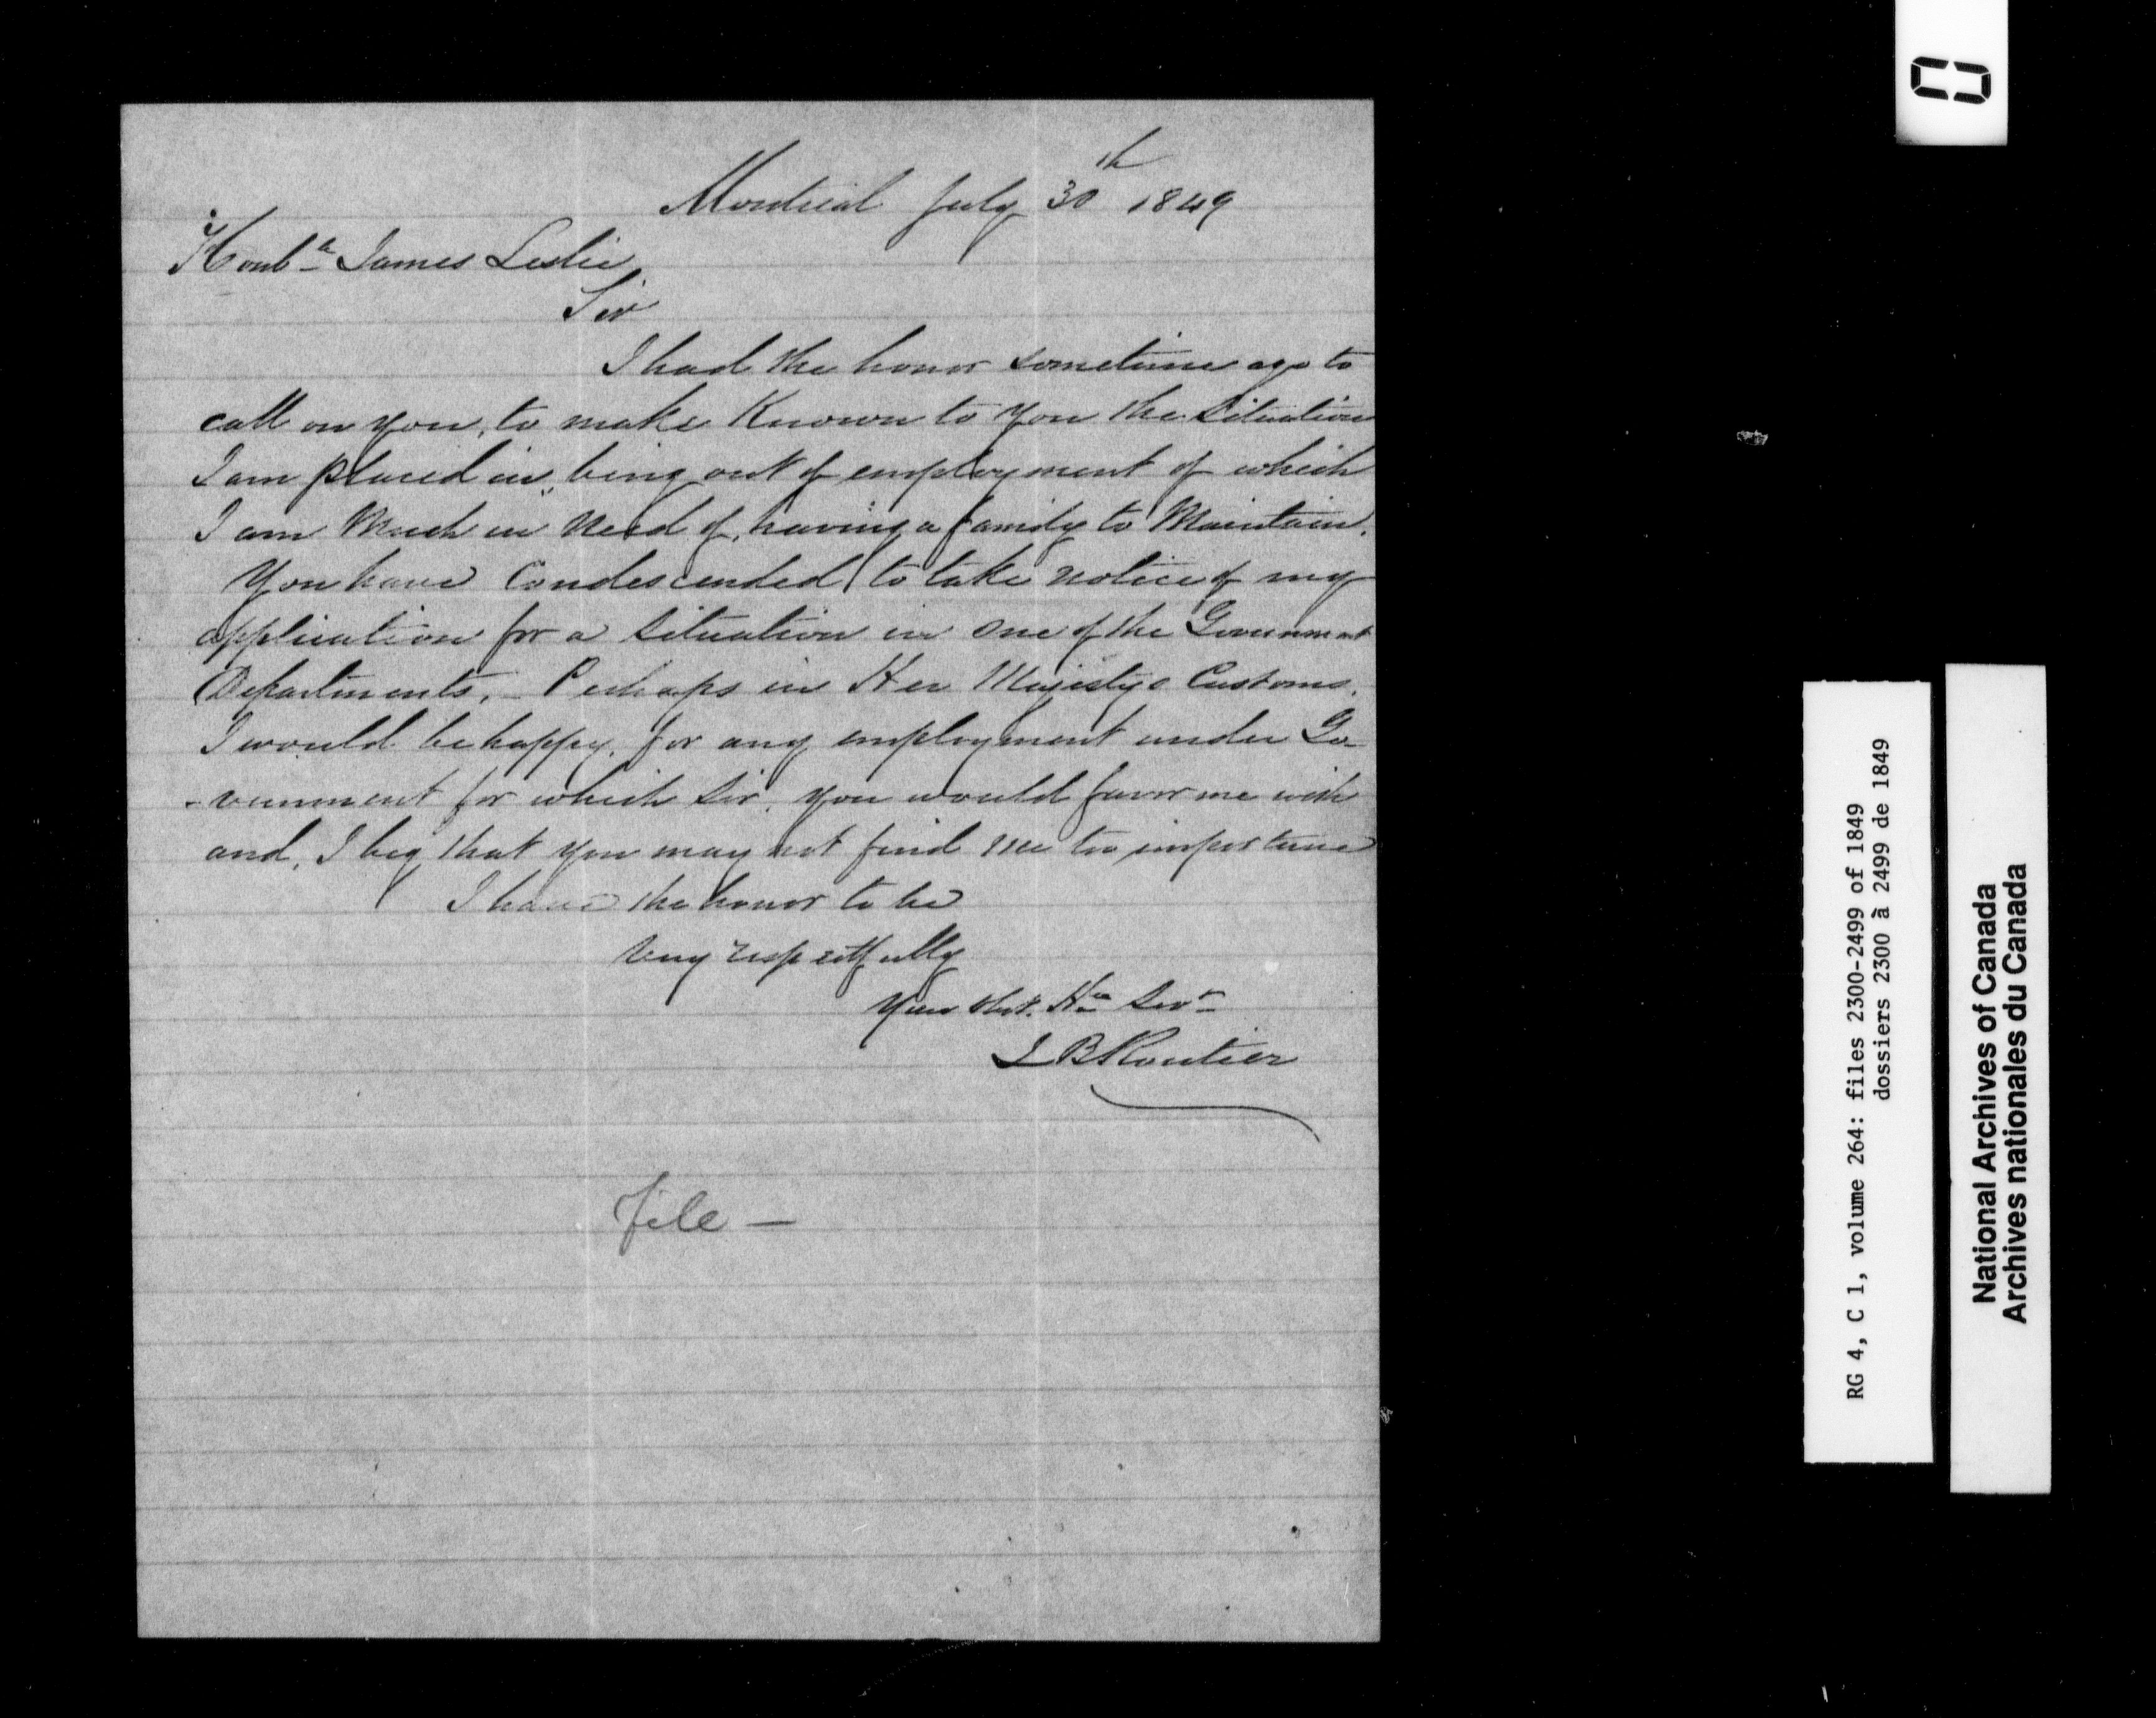 Montreal July 30th 1849
Honble James Leslie
Sir
I had the honor sometime ago to
call on you, to make Known to you the Situation
I am placed in, being out of employment of which
I am Much in Need of, having a family to Maintain.
You have Condescended to take notice of my
application for a Situation in one of the Government
Departments, - Perhaps in Her Majestys Customs.
I would be happy, for any employment under Go-
-vernment for which Sir, you would favor me with
and, I beg that you may not find me too importune
I have the honor to be
Very respectfully
Your Obt. Hle Servt
J B Routier
File —
RG 4, C 1, volume 264: files 2300-2499 of 1849
dossiers 2300 à 2499 de 1849
National Archives of Canada
Archives nationales du Canada